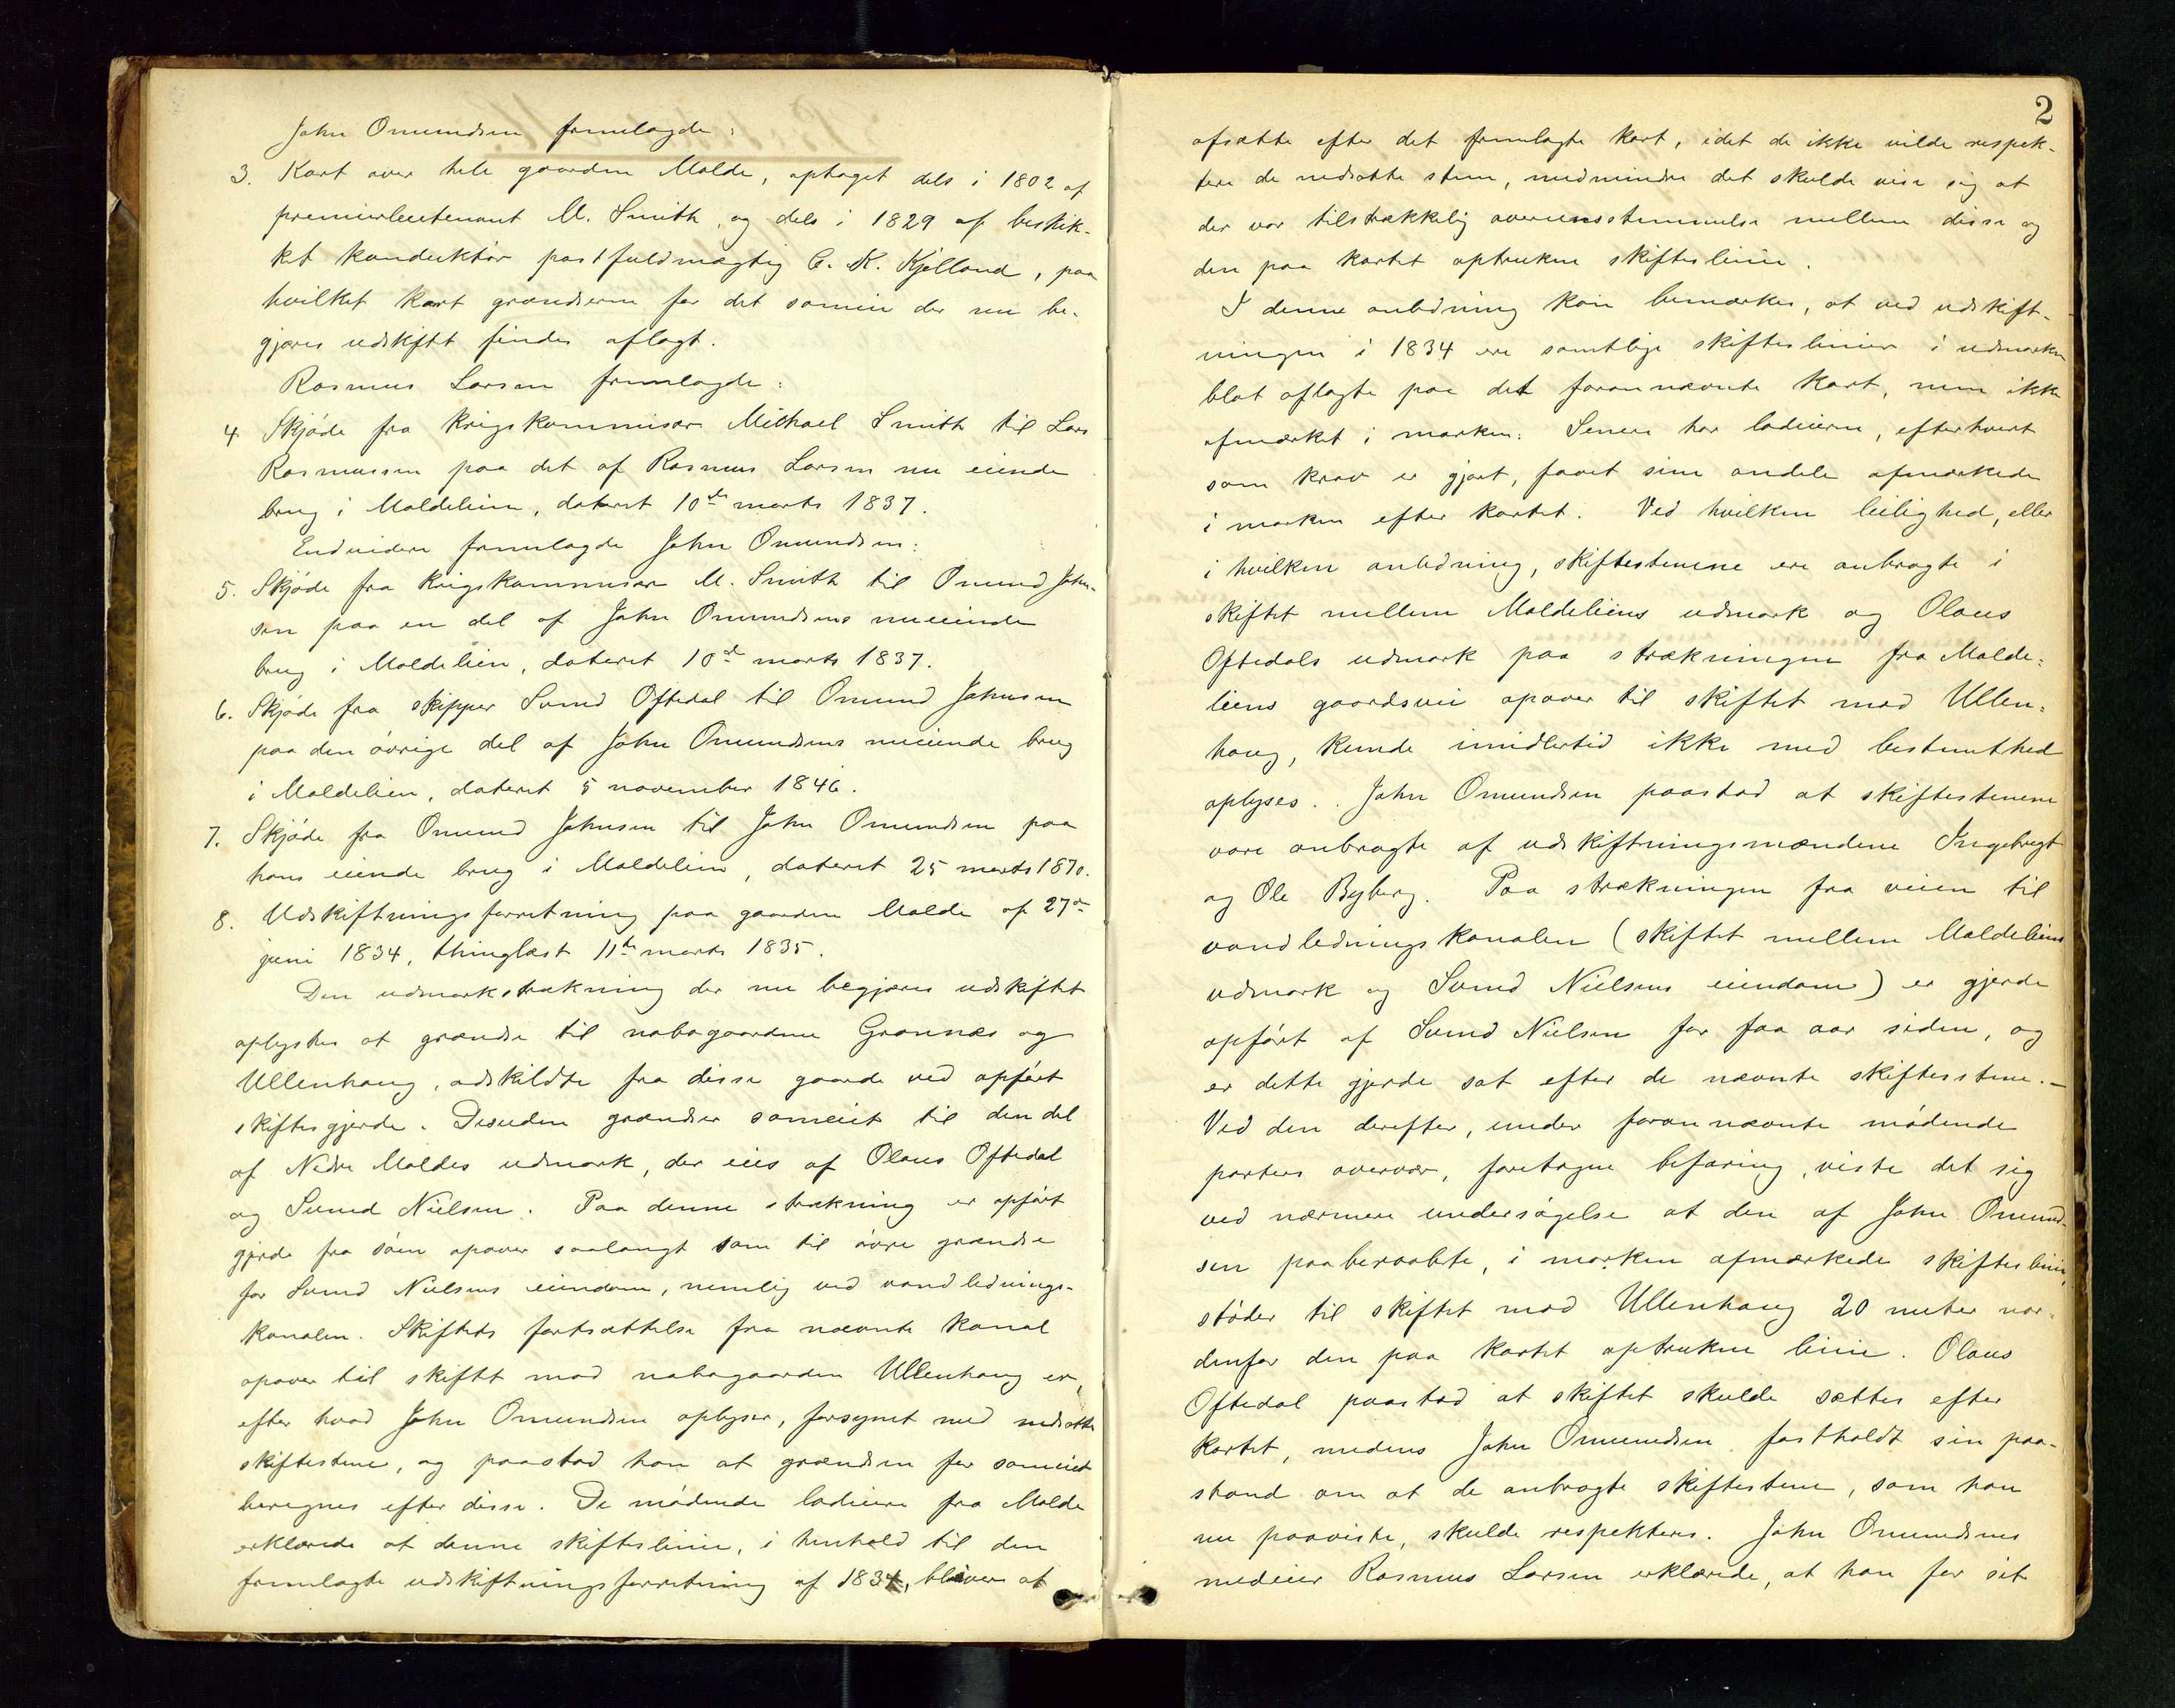 John Omundsen fremlagde:
3. Kart over hele gaarden Malde, optaget dels i 1802 af
premierleutenant M. Smith, og dels i 1829 af beskik-
ket konduktör postfuldmægtig C. K. Kjelland, paa
hvilket kart grændserne for det sameie der nu be-
gjæres udskiftt findes aflagt.
Rasmus Larsen fremlagde:
4. Skjöde fra krigskommisær Michael Smith til Lars
Rasmussen paa det af Rasmus Larsen nu eiende
brug i Maldeliein, dateret 10de marts 1837.
Endvidere fremlagde John Omundsen:
5. Skjöde fra Krigskommisær M. Smith til Omund John-
sen paa en del af John Omundsens nueiende
brug i Maldelien, dateret 10de marts 1837.
6. Skjöde fra skipper Svend Oftedal til Omund Johnsen
paa den övrige del af John Omundsens nueiende brug
i Maldelien, dateret 5 november 1846.
7. Skjöde fra Omund Johnsen til John Omundsen paa
hans eiende brug i Maldelien, dateret 25 marts 1870.
8. Udskiftningsforretning paa gaarden Malde af 27de
juni 1834, thinglæst 11te marts 1835.
Den udmarkstrækning der nu begjæres udskiftet
oplystes at grændse til nabogaardene Grannæs og
Ullenhaug, adskildte fra disse gaarde ved opfört
skiftesgjerde. Desuden grændser sameiet til den del
af Nedre Maldes udmark, der eies af Olaus Oftedal
og Svend Nielsen. Paa denne strækning er opfört
gjerde fra söen opover saalangt som til övre grændse
for Svend Nielsens eiendom, nemlig ved vandlednings-
kanalen. Skiftets fortsættelse fra nævnte kanal
opover til skiftet mod nabogaarden Ullenhaug er,
efter hvad John Omundsen oplyser, forsynet med nedsatte
skiftestene, og paastod han at grændsen for sameiet
beregnes efter disse. De mödende lodeiere fra Malde
erklærede at denne skifteslinie, i henhold til den
fremlagte udskiftningsforretning af 1834, bliver at
2
afsætte efter det fremlagte kart, idet de ikke vilde respek-
tere de nedsatte stene, medmindre det skulde vise sig at
der var tilstrækkelig overensstemmelse mellem disse og
den paa kartet optrukne skifteslinie.
I denne anledning kan bemærkes, at ved udskift-
ningen i 1834 ere samtlige skifteslinier i udmarken
blot aflagte paa det forannævnte kart, men ikke
afmærket i marken. Senere har lodeierne, efterhvert
som krav er gjort, faaet sine andele afmærkede
i marken efter kartet. Ved hvilken leilighed, eller
i hvilken anledning, skiftestenene ere anbragte i
skiftet mellem Maldeliens udmark og Olaus
Oftedals udmark paa strækningen fra Malde-
liens gaardsvei opover til skiftet mod Ullen-
haug, kunde imidlertid ikke med bestemthed
oplyses. John Omundsen paastod at skiftestenene
vare anbragte af udskiftningsmændene Ingebregt
og Ole Byberg. Paa strækningen fra veien til
vandledningskanalen (skiftet mellem Maldeliens
udmark og Svend Nielsens eiendom) er gjerde
opfört af Svend Nielsen for faa aar siden, og
er dette gjerde sat efter de nævnte skiftesstene. –
Ved den derefter, under forannævnte mödende
parters overvær, foretagne befaring, viste det sig
ved nærmere undersögelse at den af John Omund-
sen paaberaabte, i marken afmærkede skifteslinie,
stöder til skiftet mod Ullenhaug 20 meter nor-
denfor den paa kartet optrukne linie. Olaus
Oftedal paastod at skiftet skulde sættes efter
kartet, medens John Omundsen fastholdt sin paa-
stand om at de anbragte skiftestene, som han
nu paaviste, skulde respekteres. John Omundsens
medeier Rasmus Larsen erklærede, at han for sit